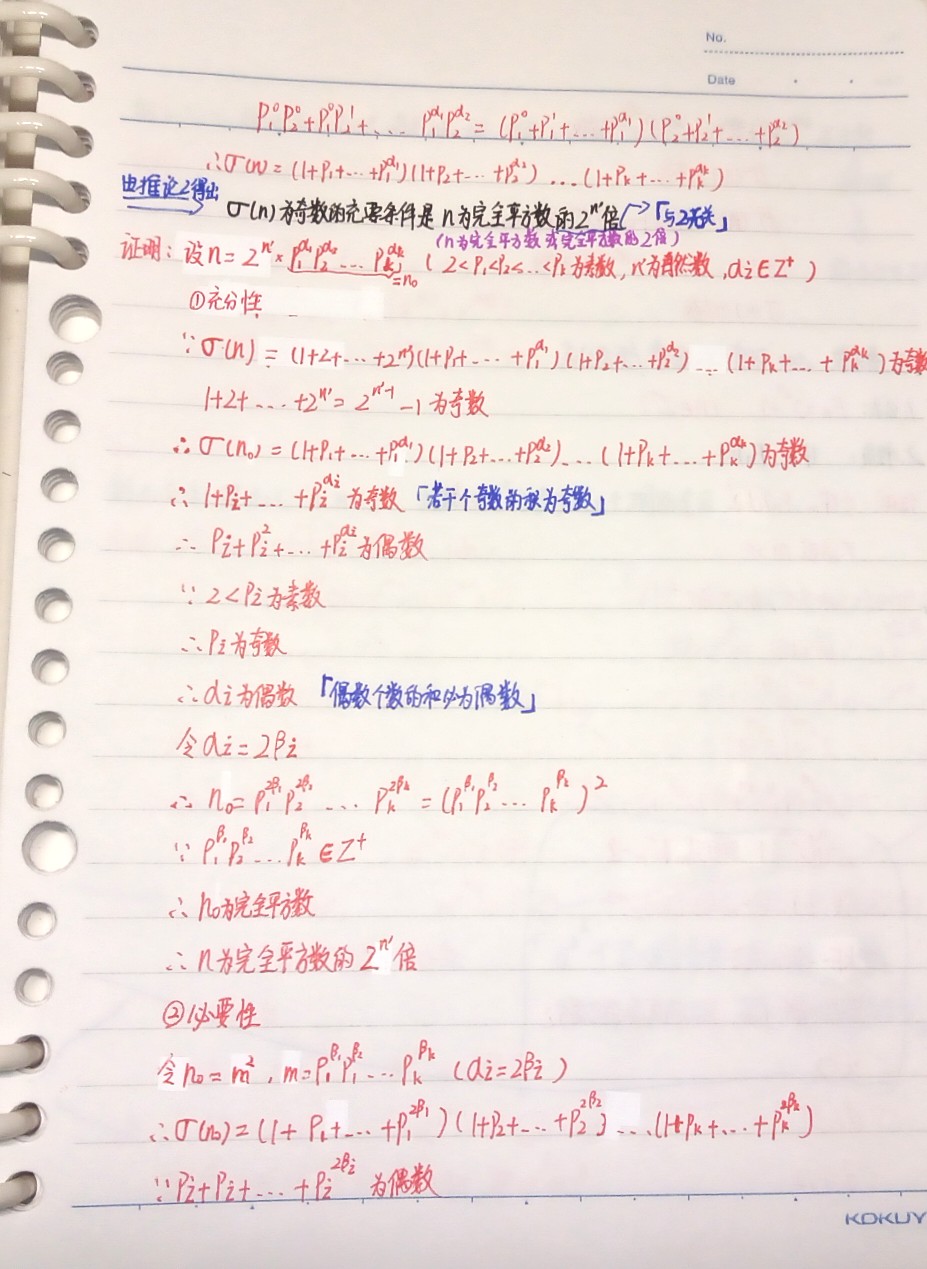 No.
Date
P₁⁰P₂⁰+P₁⁰P₂¹+... P₁^α₁P₂^α₂=(P₁⁰+P₁¹+...+P₁^α₁)(P₂⁰+P₂¹+...+P₂^α₂)
∴σ(n)=(1+P₁+...+P₁^α₁)(1+P₂+...+P₂^α₂)...(1+Pₖ+...+Pₖ^αₖ)
由推论2得出
σ(n)为奇数的充要条件是n为完全平方数的2^n'倍(→「与2无关」
(n为完全平方数或完全平方数的2倍)
证明:设n=2^n'×P₁^α₁P₂^α₂...Pₖ^αₖ=n₀(2<P₁<P₂<...<Pₖ为素数,n'为自然数,αi∈Z⁺)
①充分性
∵σ(n)=(1+2+...+2^n')(1+P₁+...+P₁^α₁)(1+P₂+...+P₂^α₂)...(1+Pₖ+...+Pₖ^αₖ)为奇数
1+2+...+2^n'=2^n'-1 -1为奇数
∴σ(n₀)=(1+P₁+...+P₁^α₁)(1+P₂+...+P₂^α₂)...(1+Pₖ+...+Pₖ^αₖ)为奇数
∴1+Pi+...+Pi^αi为奇数「若干个奇数的积为奇数」
∴Pi+Pi²+...+Pi^αi为偶数
∵2<Pi为素数
∴Pi为奇数
∴αi为偶数「偶数个数的和必为偶数」
令αi=2βi
∴n₀=P₁^2β₁P₂^2β₂...Pₖ^2βₖ=(P₁^β₁P₂^β₂...Pₖ^β₂)²
∵P₁^β₁P₂^β₂...Pₖ^βₖ∈Z⁺
∴n₀为完全平方数
∴n为完全平方数的2^n'倍
②必要性
令n₀=m²,m=P₁^β₁P₁^β₂...Pₖ^βₖ(αi=2βi)
∴σ(n₀)=(1+P₁+...+P₁^2β₁)(1+P₂+...+P₂^2β₂)...(1+Pₖ+...+Pₖ^2βₖ)
∵Pi+Pi+...+Pi^2βi为偶数
KOKUY